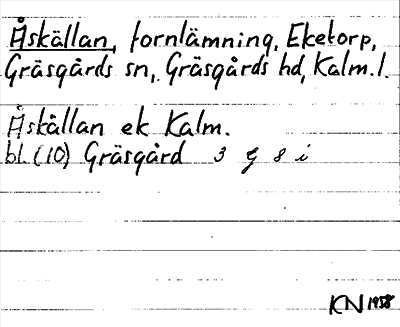 Åskällan, fornlämning, Eketorp,
Gräsgårds sn, Gräsgårds hd, Kalm. l.
Åskållan ek Kalm.
bl. (10) Gräsgård 3 g 8 i
KN 1958